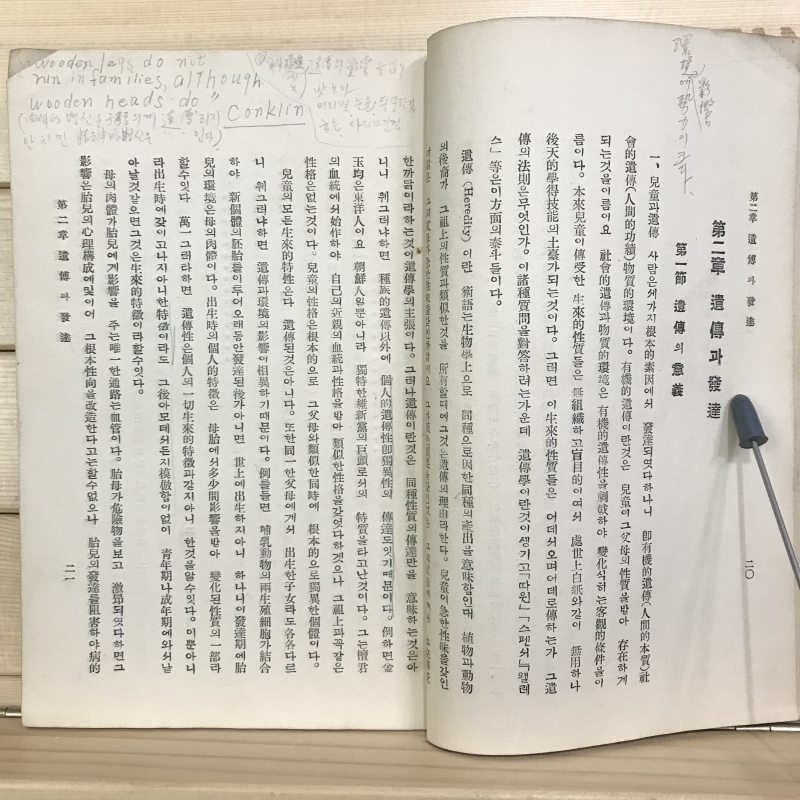 第二章 遺傳과 發達
二〇
第二章 遺傳과 發達
第一節 遺傳의 意義
一、兒童과遺傳 사람은세가지根本的素因에서 發達되엿다하나니 卽有機的遺傳(人間的本質)社
會的遺傳(人間的功績)物質的環境이다。有機的遺傳이란것은 兒童이그父母의性質을받아 存在하게
되는것을이름이요 社會的遺傳과物質的環境은 有機的遺傳性을刺戟하야 變化식히는客觀的條件을이
름이다。本來兒童이傳受한 生來的性質들은 無組織하고盲目的이여서 處世上白紙와같이 無用하나
後天的學得技能의土臺가되는것이다。그러면 이生來的性質들은 어데서오며어데로傳하는가 그遺
傳의法則은무엇인가。이諸種質問을對答하려는가운데 遺傳學이란것이생기고『따윈』『스펜서』『왤레
스』等은이方面의泰斗들이다。
遺傳(Heredity)이란 術語는生物學上으로 同種으로因한同種의產出을意味함인대 植物과動物
의後裔가 그祖上의性質과類似한것을 所有할때에그것은遺傳의理由라한다。兒童이急한性味를갖인
한까닭이라하는것이遺傳學의主張이다。그러나遺傳이란것은 同種性質의傳達만을 意味하는것은아
니니 웨그러냐하면 種族的遺傳以外에 個人的遺傳性卽獨異性의 傳達도잇기때문이다。例하면金
玉均은東洋人이요 朝鮮人일뿐아니라 獨特한維新黨의巨頭로서의 特質을타고난것이다。그는檀君
의血統에서始作하야 自己의近親의血統과性格을받아 類似한性格을갖엇다하겟으나 그祖上과꼭같은
性格은없는것이다。兒童의性格은根本的으로 그父母와類似한同時에 根本的으로獨異한個體이다。
兒童의모든生來的特性은다 遺傳된것은아니다。또한同一한父母에게서 出生한子女라도各各다르
니 웨그러냐하면 遺傳과環境의影響이相異하기때문이다。例를들면 哺乳動物의兩生殖細胞가結合
하야 新個體의胚胎를이루어오래동안發達된後가아니면 世上에出生하지아니 하나니이發達期에胎
兒의環境은母의肉體이다。出生時의個人的特徵은 母胎에서多少間影響을받아 變化된性質의一部라
할수잇다 萬一그러하면 遺傳性은個人의一切生來的特徵과같지아니 한것을알수잇다。이뿐아니
라出生時에갖이고나지아니한特徵이라도 그後아모데서든지模倣함이없이 靑年期나成年期에와서낱
아날것같으면그것은生來的特徵이라할수잇다。
母의肉體가胎兒에게影響을 주는唯一한通路는血管이다。胎母가危險物을보고 激昂되엿다하면그
影響은胎兒의心理構成에및이어 그根本性向을改造한다고는할수없으나 胎兒의發達을阻害하야病的
第二章 遺傳과 發達
二一
"wooden legs do not
run in families, although
wooden heads do"
Conklin